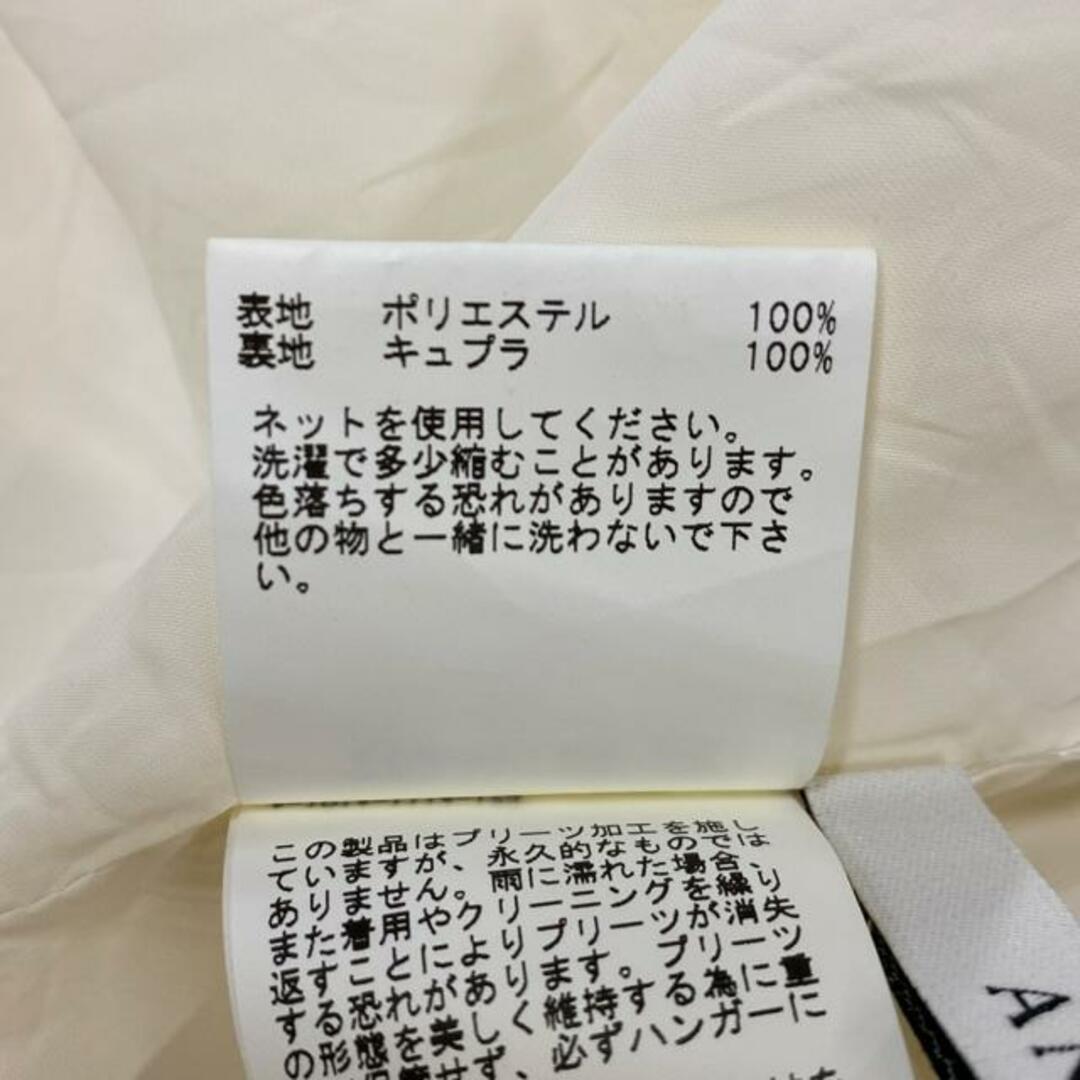 表地 ポリエステル 100%
裏地 キュプラ 100%
ネットを使用してください。
洗濯で多少縮むことがあります。
色落ちする恐れがありますので
他の物と一緒に洗わないで下さ
い。
この製品はプリーツ加工を施し
ていますが、永久的なものでは
ありません。雨に濡れた場合、
また着用やクリーニングを繰り
返すことによりプリーツが消失
する恐れがあります。プリーツ
の形態を美しく維持する為に重
せず、必ずハンガーに